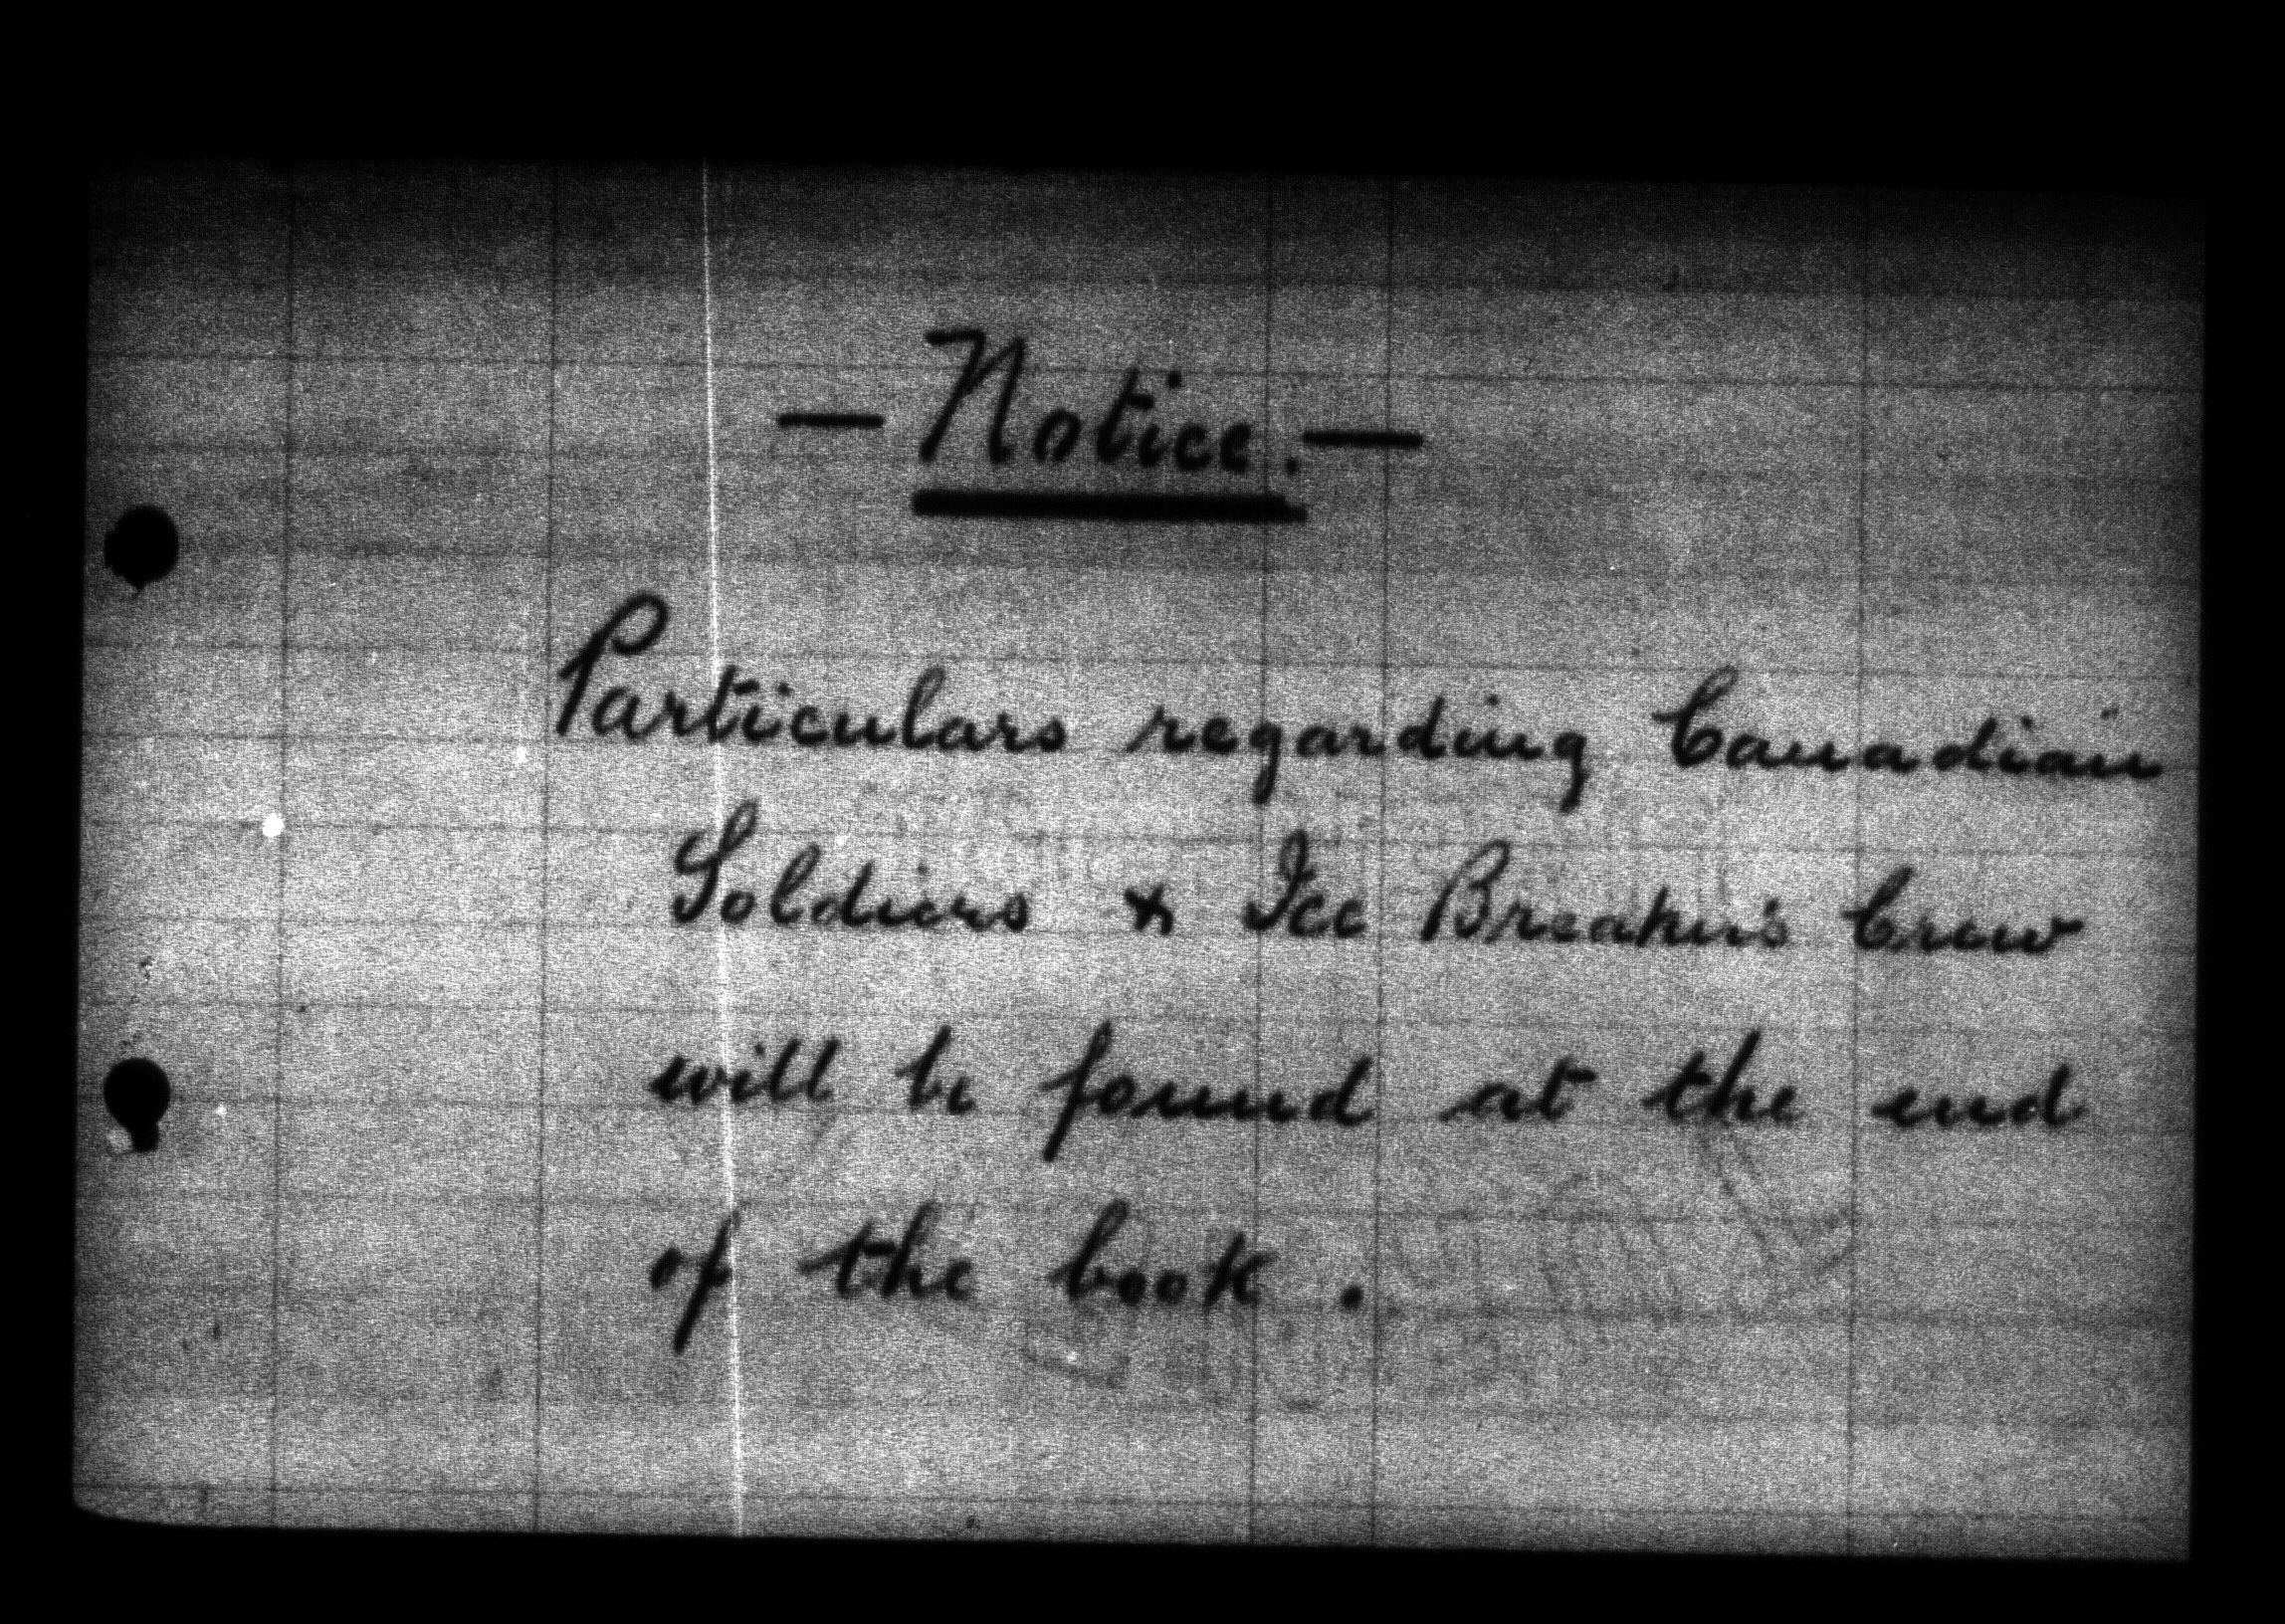 — Notice. —
Particulars regarding Canadian
Soldiers & Ice Breaker's Crew
will be found at the end
of the book.